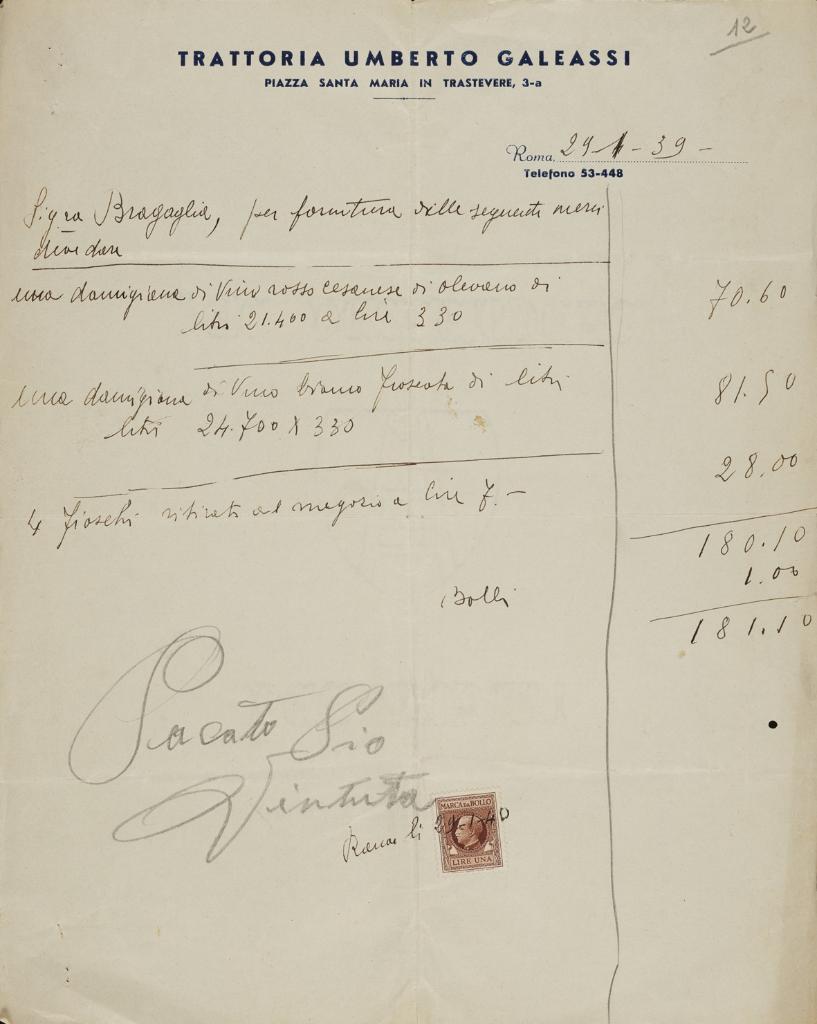 12
TRATTORIA UMBERTO GALEASSI
PIAZZA SANTA MARIA IN TRASTEVERE, 3-a
Roma, 29-1-39-
Telefono 53-448
Sigra Bragaglia, per fornitura delle seguenti merci
deve dare
una damigiana di Vino rosso cesanese di olevano di
litri 21.400 a lire 330 70.60
una damigiana di Vino bianco di litri
litri 24.700 X 330 81.50
4 fiaschi ritirati al negozio a lire 7.- 28.00
180.10
Bolli 1.00
181.10
Pacato
MARCA DA BOLLO
Roma li 29-1-40
LIRE UNA